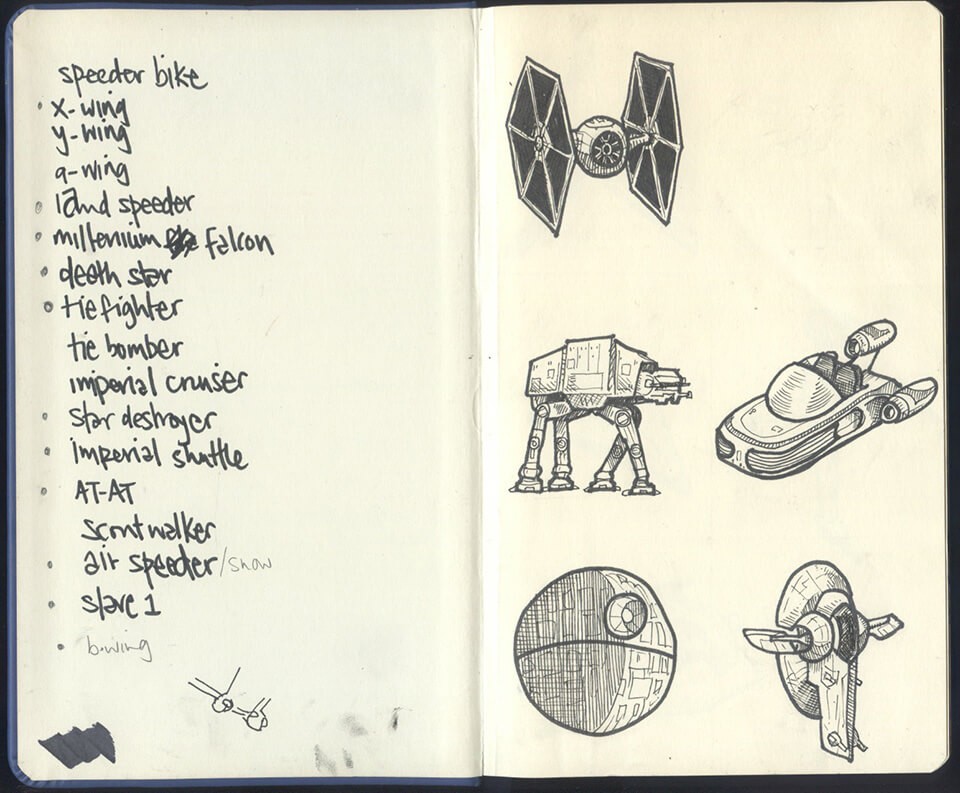 speeder bike
x-wing
y-wing
a-wing
land speeder
millenium falcon
death star
tie fighter
tie bomber
imperial cruiser
star destroyer
imperial shuttle
AT-AT
scout walker
air speeder/snow
slave 1
b-wing